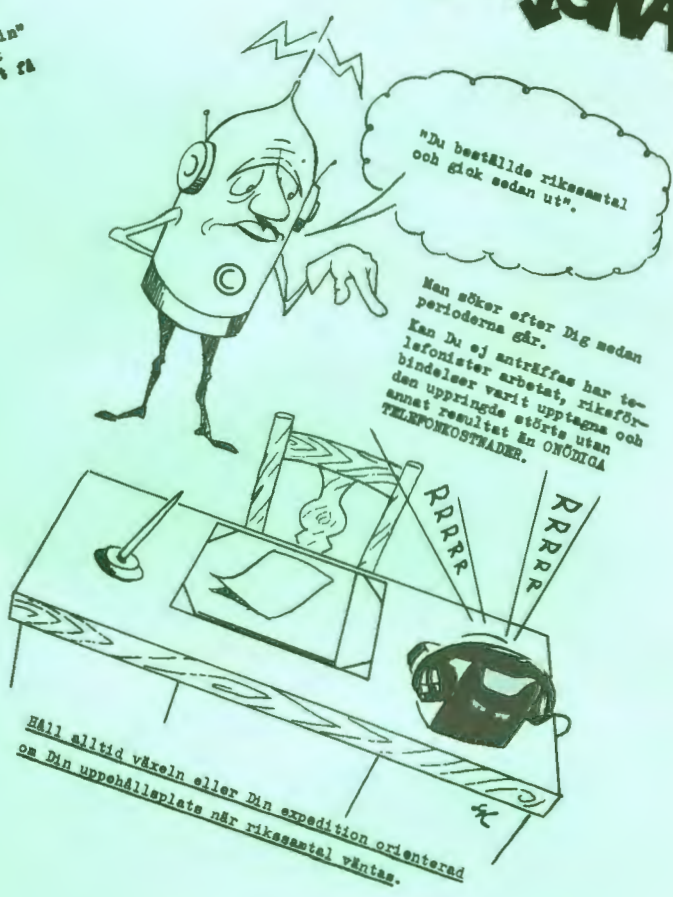 in"
t få
"Du beställde rikssamtal
och gick sedan ut".
Man söker efter Dig medan
perioderna går.
Kan Du ej anträffas har te-
lefonister arbetat, riksför-
bindelser varit upptagna och
den uppringde störts utan
annat resultat än ONÖDIGA
TELEFONKOSTNADER.
RRRRR
RRRRR
Håll alltid växeln eller Din expedition orienterad
om Din uppehållsplats när rikssamtal väntas.